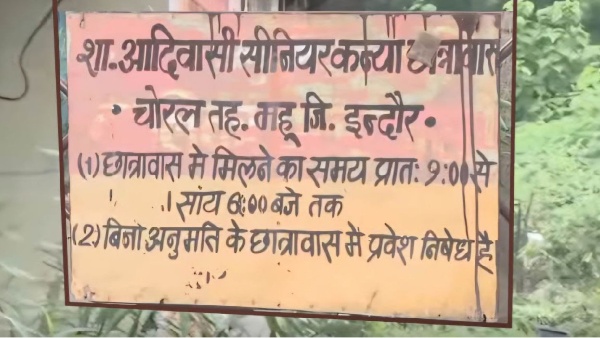 शा. आदिवासी सीनियर कन्या छात्रावास
• चोरल तह. महू जि. इन्दौर •
(1) छात्रावास मे मिलने का समय प्रातः 9:00 से
सांय 6:00 बजे तक
(2) बिना अनुमति के छात्रावास में प्रवेश निषेध है